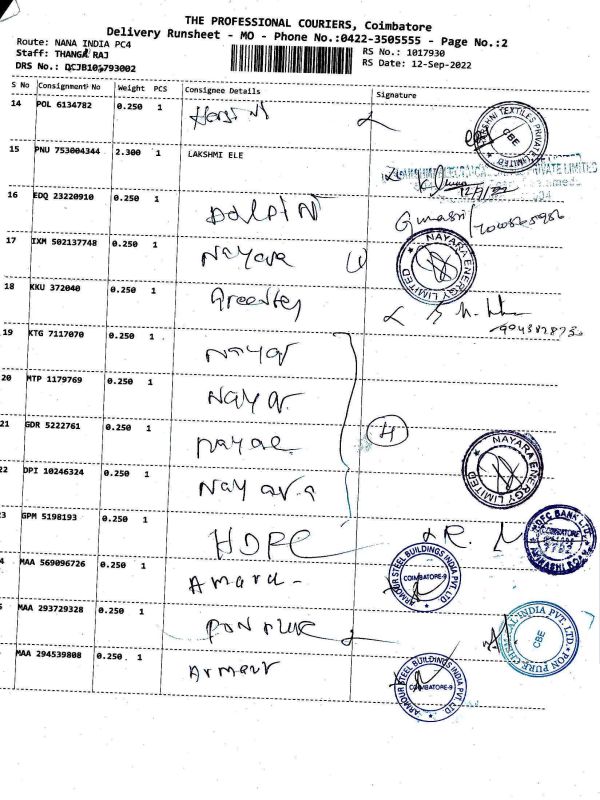 THE PROFESSIONAL COURIERS, Coimbatore
Delivery Runsheet - MO - Phone No.:0422-3505555 - Page No.:2
Route: NANA INDIA PC4
RS No.: 1017930
Staff: THANGA RAJ
RS Date: 12-Sep-2022
DRS No.:
S No Consignment No Weight PCS Consignee Details Signature
14 POL 6134782 0.250 1
TEXTILES PRIVATE LIMITED CBE
15 PNU 753004344 2.300 1 LAKSHMI ELE
PRIVATE LIMITED
12/9/22
16 EDQ 23220910 0.250 1
17 IXM 502137748 0.250 1 Nayara
NAYARA ENERGY LIMITED
18 KKU 372040 0.250 1
19 KTG 7117070 0.250 1 Nayar
20 MTP 1179769 0.250 1 Nayar
21 GDR 5222761 0.250 1 Nayar
4
22 DPI 10246324 0.250 1 Nayara
NAYARA ENERGY LIMITED
3 GPM 5198193 0.250 1 HDFC
HDFC BANK LTD. COIMBATORE
4 MAA 569096726 0.250 1
ARMOUR STEEL BUILDINGS INDIA PVT. LTD COIMBATORE-9
MAA 293729328 0.250 1 PON PURE
PON PURE CHEMICAL INDIA PVT. LTD. CBE
MAA 294539808 0.250 1 Armour
ARMOUR STEEL BUILDINGS INDIA PVT. LTD COIMBATORE-9